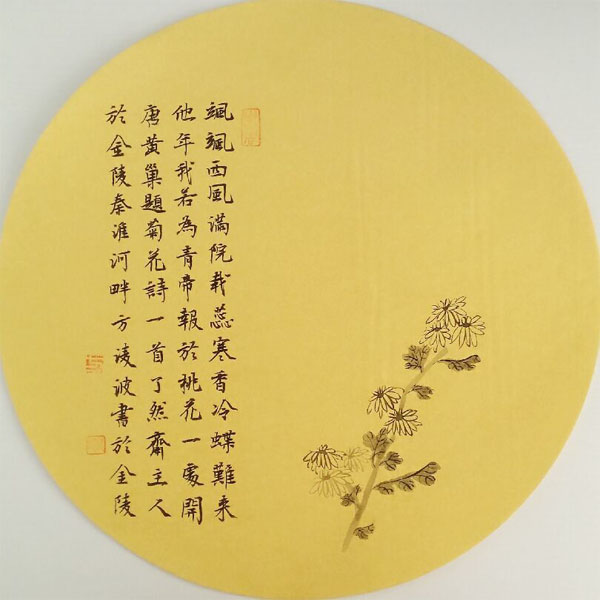 颯颯西風滿院栽蕊寒香冷蝶難来
他年我若為青帝報於桃花一處開
唐黄巢題菊花詩一首了然齋主人
於金陵秦淮河畔方凌波書於金陵